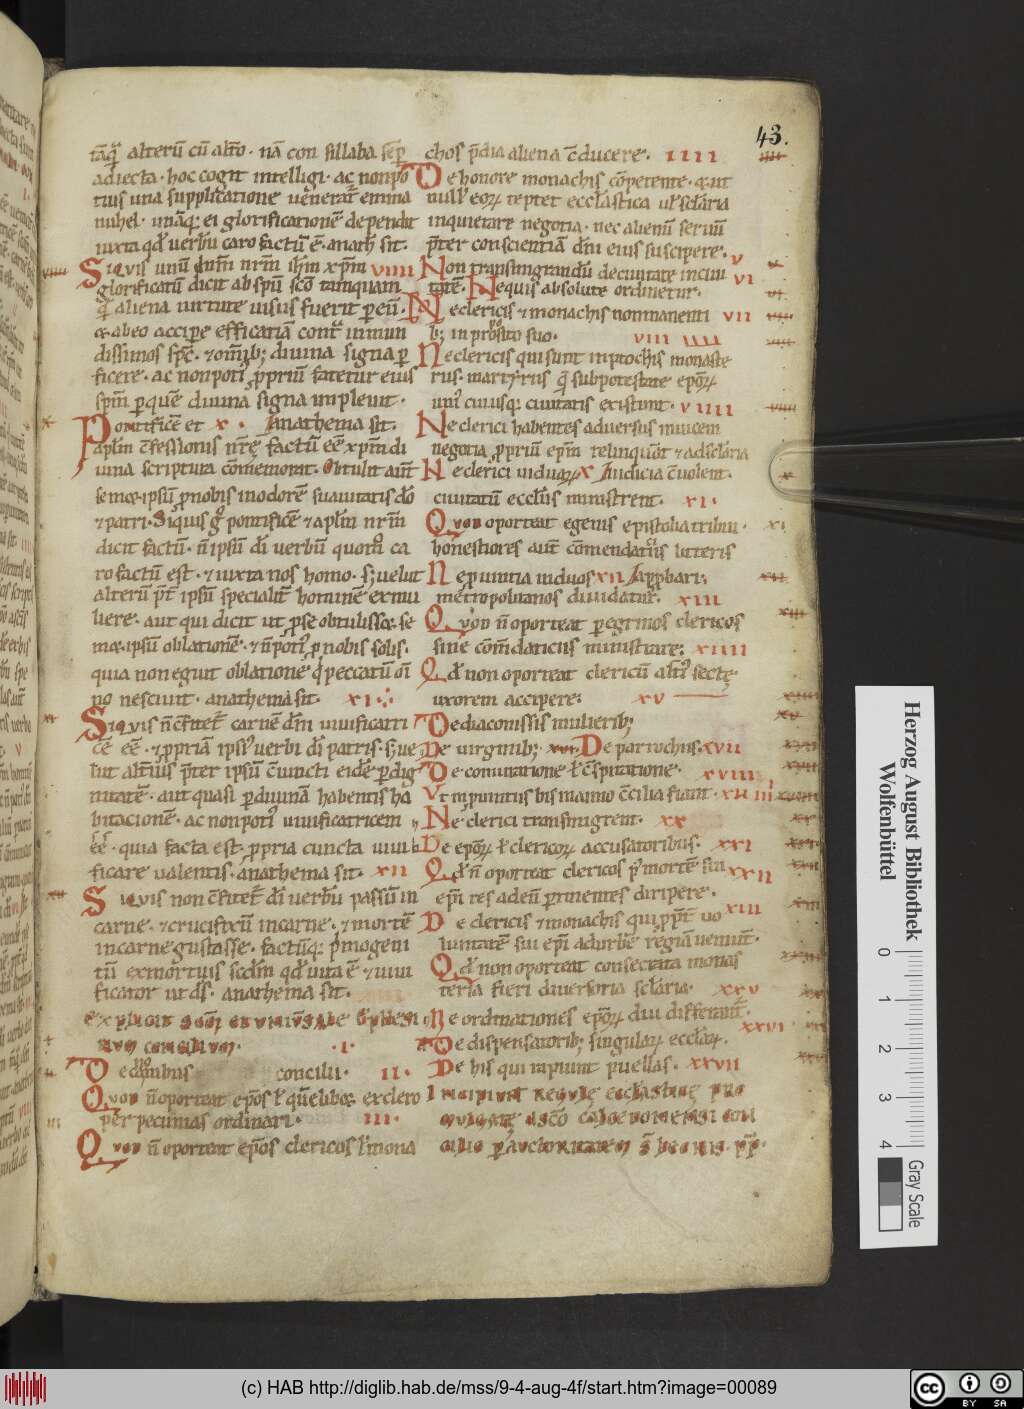 43.
tāq̄ alterū cū alt̄o · nā con sillaba sēp
adiecta · hoc cogit intelligi · ac nonpo
tius una supplicatione ueneratͬ emma
nuhel · unāq; ei glorificationē dependit
iuxta qd̄ uerbū caro factū ē · anath̄ sit.
Siqvis unū dn̄m nr̄m ih̄m xp̄m viiii
glorificatū dicit ab spū sc̄o tamquam
q̄ aliena uirtute uisus fuerit p eū ·
& abeo accipe efficatiā cont̄ inmun
dissimos sp̄c · & om̄ib; diuina signa p
ficere · ac nonpoti' ppriū fatetur eius
sp̄m p quē diuina signa impleuit ·
Pontificē et x · Anathema sit.
apl̄m c̄fessionis nr̄ę factū eē xp̄m di
uina scriptura cōmemorat · Obtulit aūt
semet ipsū p nobis inodorē suauitatis dō
& patri · Siquis g° pontificē & apl̄m nr̄m
dicit factū · n̄ ipsū dī uerbū quom° ca
ro factū est · & iuxta nos homo · s; uelut
alterū p̄t ipsū specialit̄ hominē ex mu
liere · aut qui dicit ut p se obtulisset se
met ipsū oblationē · & n̄ poti' p nobis solis ·
quia non eguit oblatione q̄ peccatū oī
no nesciuit · anathema sit · xi ·
Siqvis n̄ c̄fitet̄ carnē dn̄i uiuificatri
cē eē · & ppriā ipsi' uerbi dī patris · s; ue
lut alt̄ius p̄ter ipsū c̄iuncti eidē p dig
nitatē · aut quasi p diuinā habentis ha
bitationē · ac non poti' uiuificatricem
eē · quia facta est ppria cuncta uiui
ficare ualentis · anathema sit · xii
Siqvis non c̄fitet̄ dī uerbū passū in
carne · & crucifixū in carne · & mortē
in carne gustasse · factūq; p̄mogeni
tū ex mortuis scd̄m qd̄ uita ē & uiui
ficator ut ds̄ · anathema sit.
· i ·
De concilii · ii ·
Qvod n̄ oporteat ep̄os ł quēlibet ex clero
per pecunias ordinari · iii ·
Qvod n̄ oporteat ep̄os clericos ł mona
chos p̄dia aliena c̄ducere · iiii
De honore monachis cōpetente · & ut
null' eoꝝ teptet ecclāstica uł sclāria
inquietare negotia · nec alienū seruū
p̄ter conscientiā dn̄i eius suscipere · v
Non transmigrandū de ciuitate in ciui
tatē · Nequis absolute ordinetur · vi
Ne clericis & monachis nominanti vii
b; in p̄posito suo · viii iiii
Ne clericis qui sunt in ptochiis monaste
riis · martyriis q̄ sub potestate ep̄oꝝ
uni' cuiusq; ciuitatis existunt · viiii
Ne clerici habentes aduersus inuicem
negotia ppriū ep̄m relinquāt & ad sclāria
Ne clerici in duaꝝ x iudicia c̄uolent ·
ciuitatū ecclīis ministrent · xi ·
Qvod oporteat egenis epistolia tribui ·
honestiores aut̄ cōmendatitiis litteris
Ne puintia in duos xii app̄bari;
metropolitanos diuidatur · xiii
Qvod n̄ oporteat peregrinos clericos
sine com̄daticiis ministrare; xiiii
Qd̄ non oporteat clericū alt̄i' sectę
uxorem accipere; xv
De diaconissis mulierib;
De uirginib; xvi · De parrochiis · xvii
De coniuratione ł c̄spiratione · xviii
Vt in puintiis bis in anno c̄cilia fiant ·
Ne clerici transmigrent · xx
De ep̄oꝝ ł clericoꝝ accusatoribus · xxi
Qd̄ n̄ oporteat clericos p' mortē sui xxii
ep̄i res ad eū ptinentes diripere ·
De clericis & monachis qui pp̄t̄ uo xiii
luntatē sui ep̄i ad urbē regiā ueniūt ·
Qd̄ non oporteat consecrata monas
teria fieri diuersoria sclāria · xxv
Ne ordinationes ep̄oꝝ diu differant̄ ·
De dispensatorib; singulaꝝ ecclāꝝ · xxvi
De his qui rapiunt puellas · xxvii
Incipiunt regulę ecclāsticę pro
Herzog August Bibliothek
Wolfenbüttel
0 1 2 3 4
Gray Scale
(c) HAB http://diglib.hab.de/mss/9-4-aug-4f/start.htm?image=00089
cc BY SA